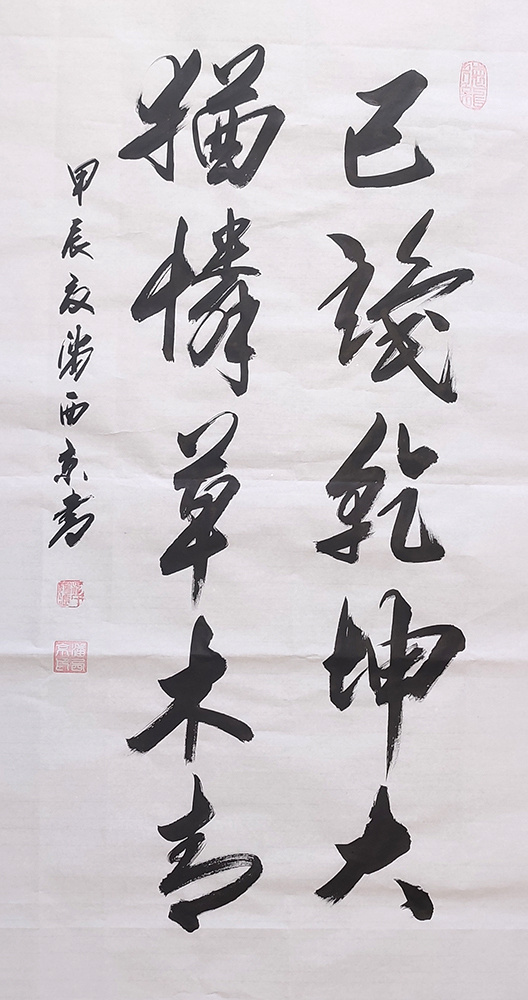 已識乾坤大
猶憐草木青
甲辰夏潘西京書